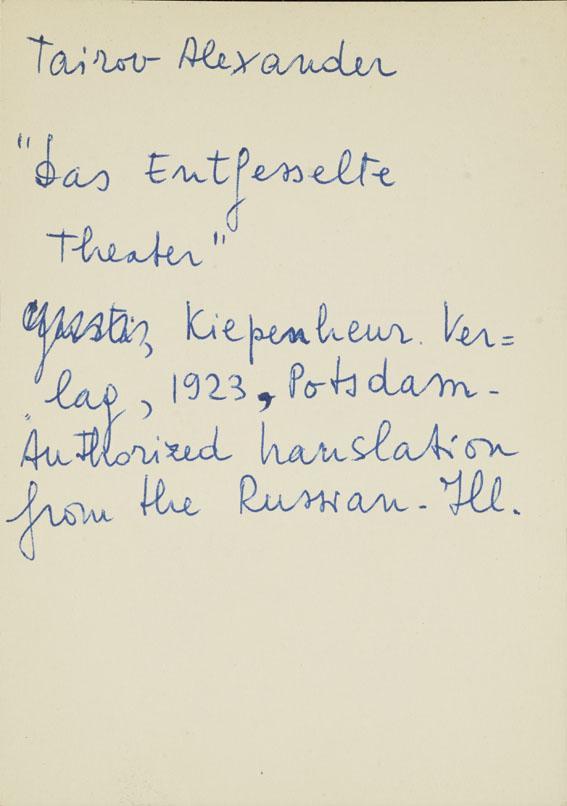 Tairov Alexander
"Das Entfesselte
Theater"
Kiepenheur. Ver=
lag, 1923, Potsdam -
Authorized translation
from the Russian - Ill.